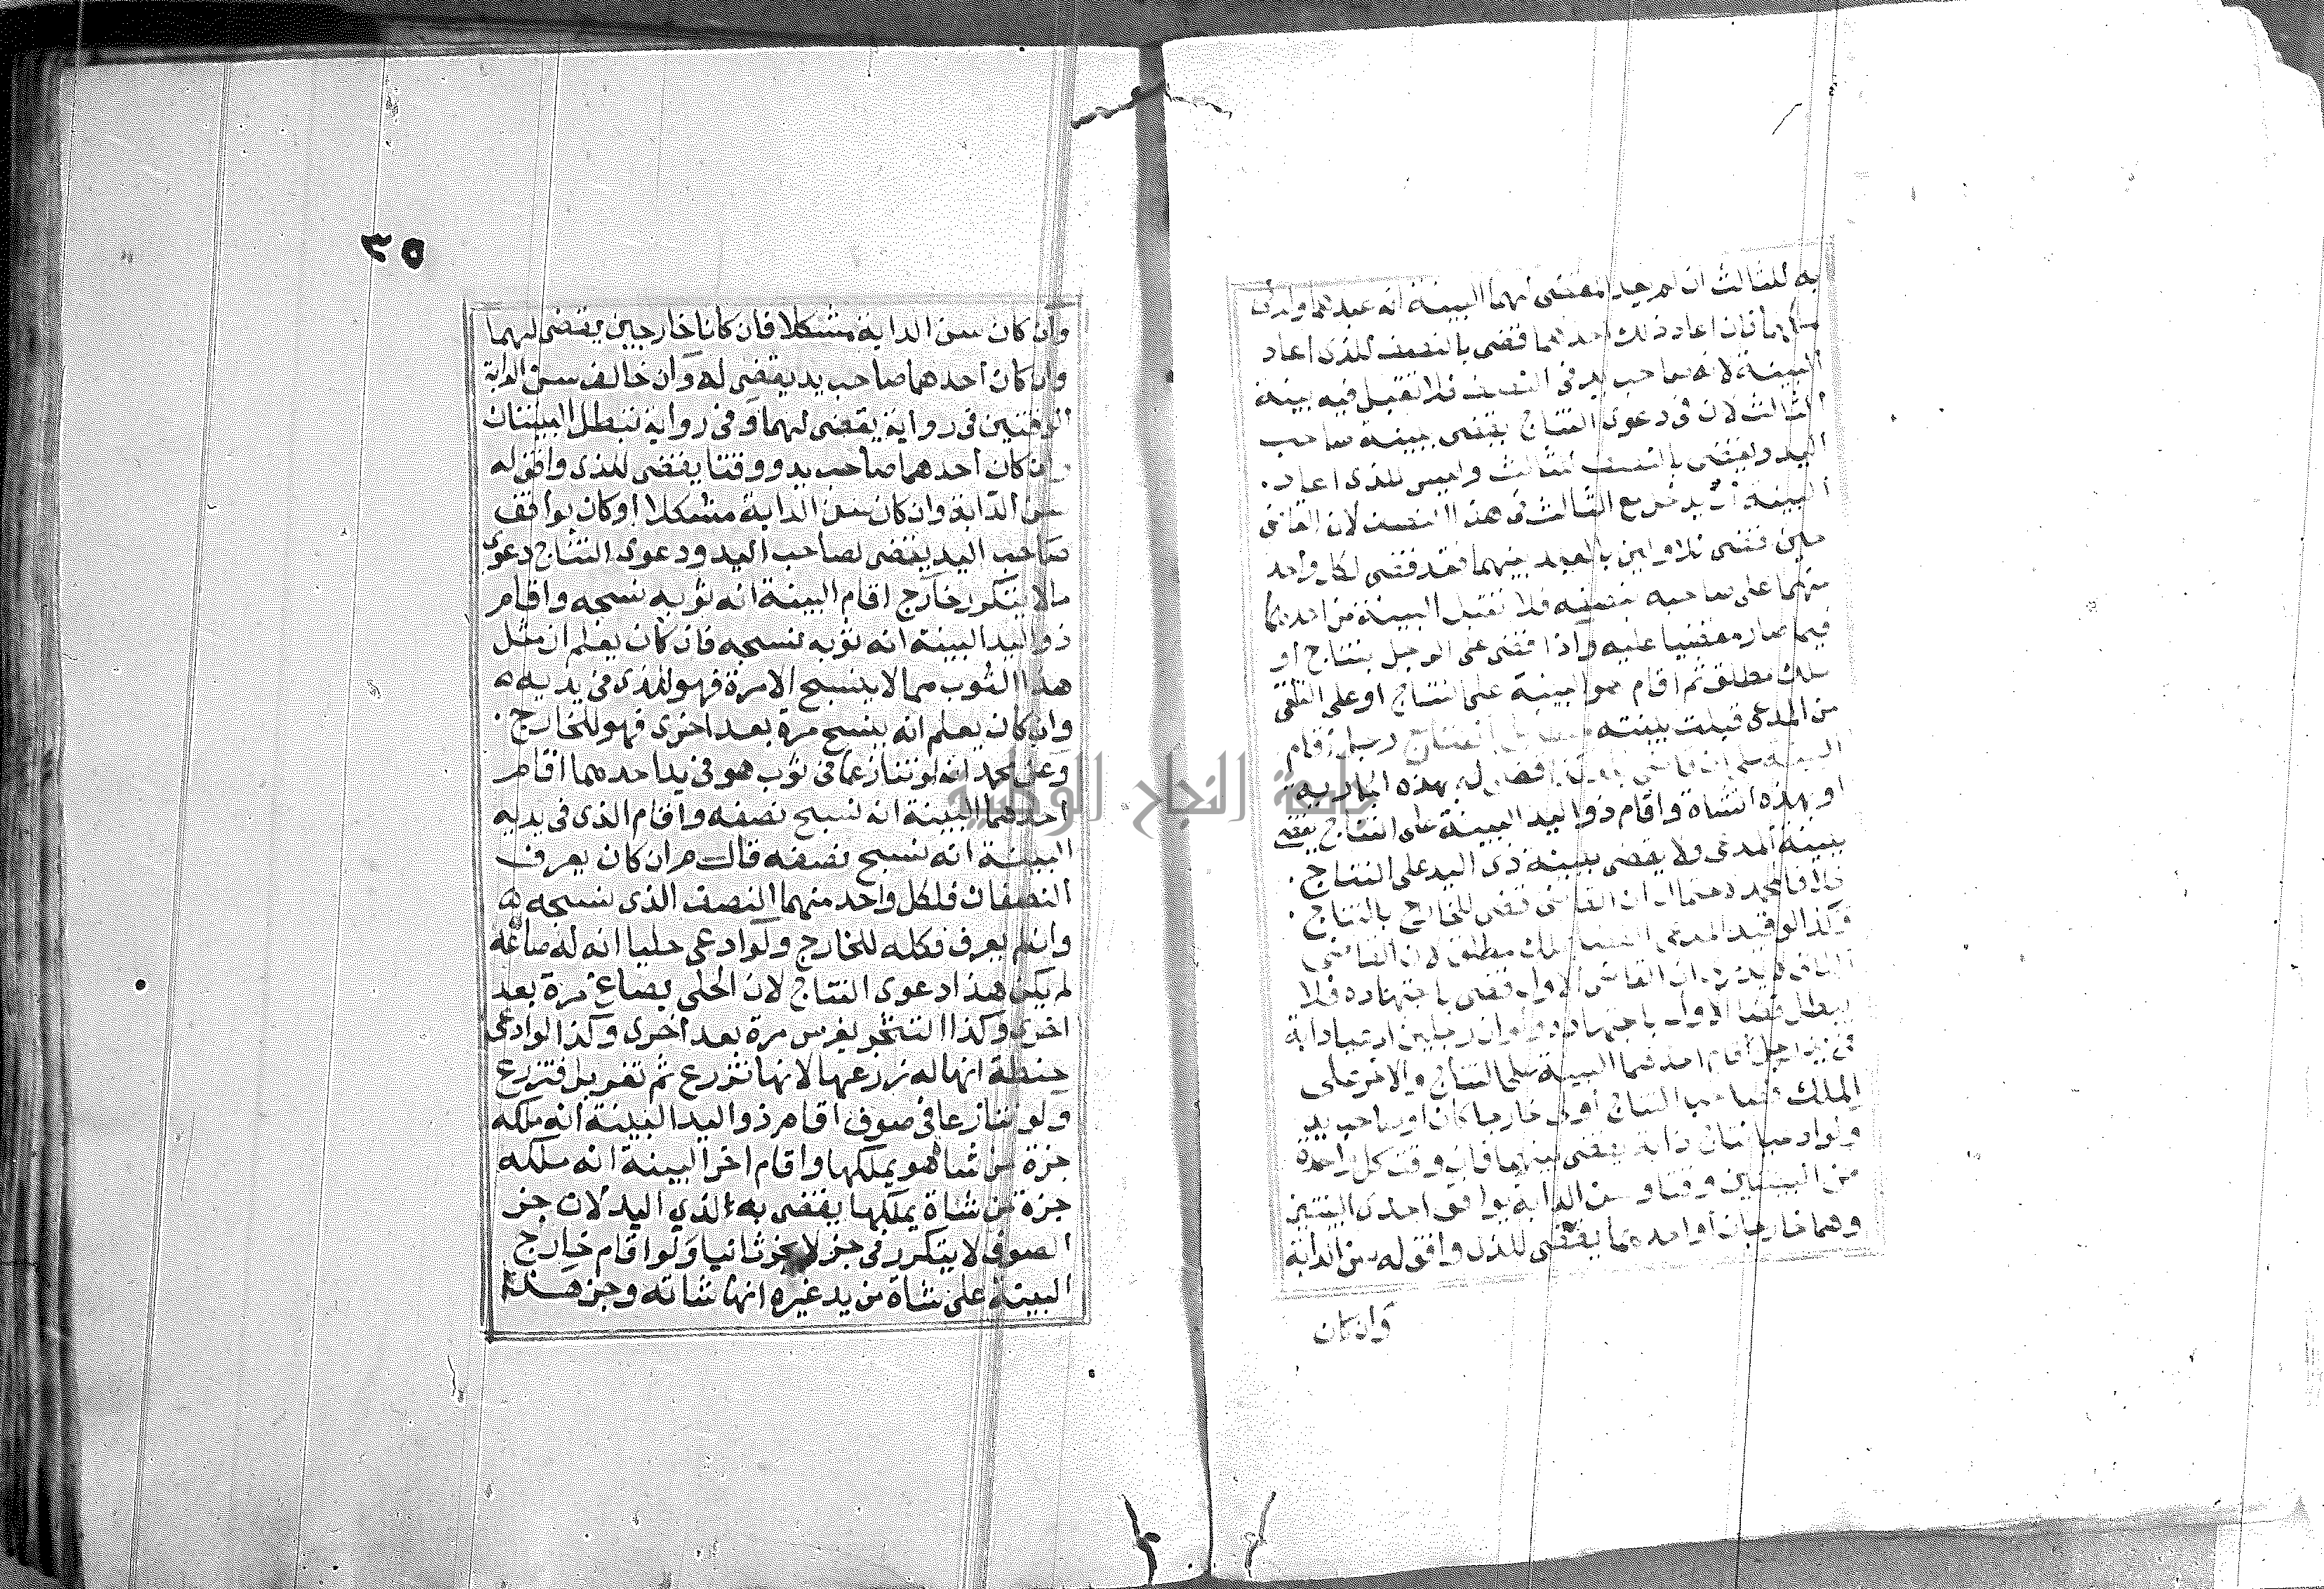 به للثالث ان لم يعد المقضى لهما البينة انه عبدهما ولد فى
ملكهما فان اعاد ذلك احدهما قضى بالنصف للذى اعاد
البينة لانه صاحب يد فى النصف فلا تقبل فيه بينة
الثالث لان فى دعوى النتاج يقضى ببينة صاحب
اليد ويقضى بالنصف للثالث وليس للذى اعاد
البينة ان يدخل مع الثالث فى هذا النصف لان القاضى
حين قضى للاولين بالعبد بينهما فقد قضى لكل واحد
منهما على صاحبه بنصفه فلا تقبل البينة من احدهما
فيما صار مقضيا عليه واذا قضى على الرجل بنتاج او
ملك مطلق ثم اقام هو البينة على النتاج او على التلقى
من المدعى قبلت بينته النتاج رجل اقام
البينة على ان قاضى له بهذه الجارية
او بهذه الشاة واقام ذو اليد البينة على النتاج يقضى
ببينة المدعى ولا يقضى ببينة ذى اليد على النتاج
خلافا لمحمد لاحتمال ان القاضى قضى للخارج بالنتاج
وكذا لو قيد المدعى القضا بملك مطلق لان القاضى
ان القاضى الاول قضى باجتهاده فلا
يبطل قضا الاول باجتهاده ولو ان رجلين ادعيا دابة
فى يد رجل اقام احدهما البينة على النتاج والاخر على
الملك فصاحب النتاج اولى خارجا كان او صاحب يد
ولو ادعيا نتاج دابة يقضى بينهما فان وقت كل واحدة
من البينتين وقتا وسن الدابة يوافق احدى البينتين
وهما خارجان او احدهما يقضى للذى وافق له سن الدابة
وان كان
٣٥
وان كان سن الدابة مشكلا فان كانا خارجين يقضى لهما
وان كان احدهما صاحب يد يقضى له وان خالف سن الدابة
الوقتين فى رواية يقضى لهما وفى رواية تبطل البينتان
وان كان احدهما صاحب يد ووقتا يقضى للذى وافق له
سن الدابة وان كان سن الدابة مشكلا او كان يوافق
صاحب اليد يقضى لصاحب اليد ودعوى النتاج دعوى
مالا يتكرر خارج اقام البينة انه ثوبه نسجه واقام
ذو اليد البينة انه ثوبه نسجه فان كان يعلم ان مثل
هذا الثوب مما لا ينسج الا مرة فهو للذى فى يديه
وان كان يعلم انه ينسج مرة بعد اخرى فهو للخارج
وعن محمد انه لو تنازعا فى ثوب هو فى يد احدهما اقام
احدهما البينة انه نسج نصفه واقام الذى فى يديه
البينة انه نسج نصفه قال م ان كان يعرف
النصفان فلكل واحد منهما النصف الذى نسجه
وان لم يعرف فكله للخارج ولو ادعى حليا انه له صاغه
لم يكن هذا دعوى النتاج لان الحلى يصاغ مرة بعد
اخرى وكذا الشجر يغرس مرة بعد اخرى وكذا لو ادعى
حنطة انها له زرعها لانها تزرع ثم تغربل فتزرع
ولو تنازعا فى صوف اقام ذو اليد البينة انه ملكه
جزة من شاة هو يملكها واقام اخر البينة انه ملكه
جزة من شاة يملكها يقضى به لذي اليد لان جز
الصوف لا يتكرر فى جز لا يجز ثانيا ولو اقام خارج
البينة على شاة من يد غيره انها شاته وجز هذا
جامعة النجاح الوطنية